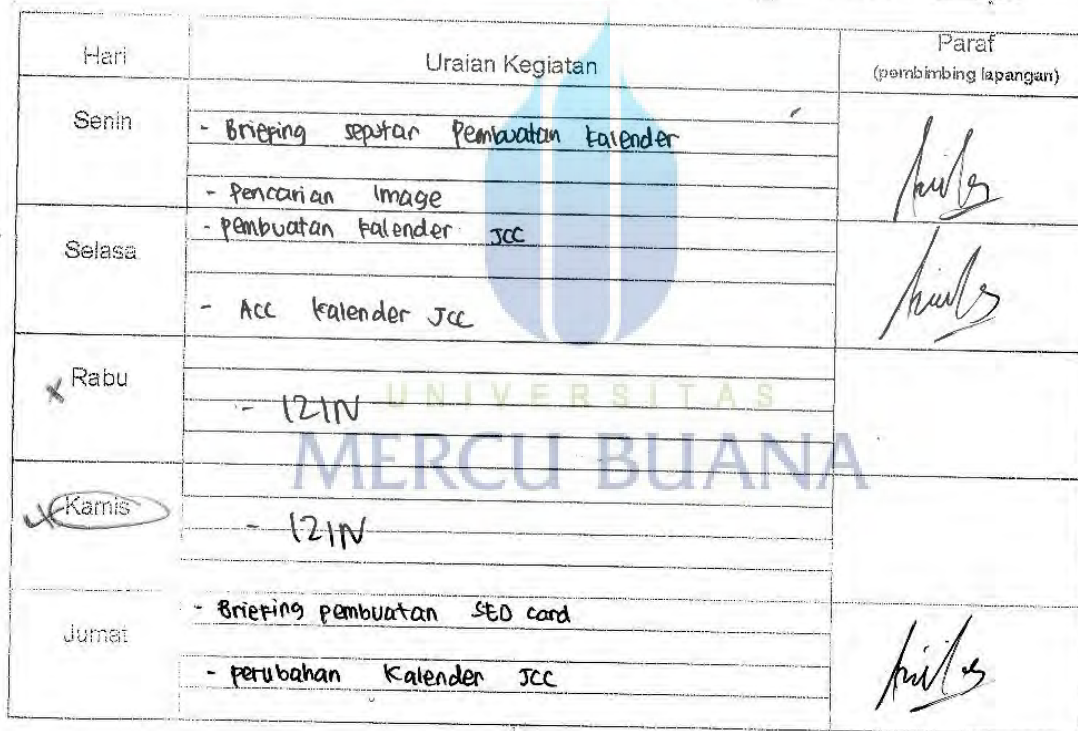 Hari
Uraian Kegiatan
Paraf
(pembimbing lapangan)
Senin
- Briefing seputar Pembuatan kalender
- Pencarian Image
Selasa
- pembuatan kalender JCC
- ACC kalender JCC
Rabu
- IZIN
UNIVERSITAS
MERCU BUANA
Kamis
- IZIN
Jumat
- Briefing pembuatan SED card
- perubahan Kalender JCC